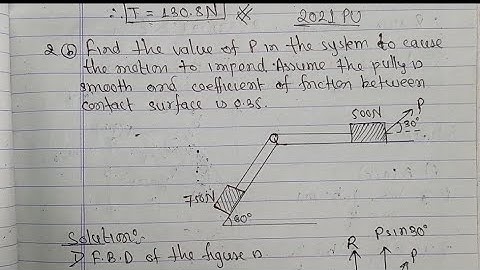 ∴ T = 130.8N
2021 PU
2 (b) Find the value of P in the system to cause
the motion to impend. Assume the pully is
smooth and coefficient of friction between
contact surface is 0.35.
500N
P
30°
750N
60°
Solution:-
1) F.B.D of the figure is
R
Psin30°
P